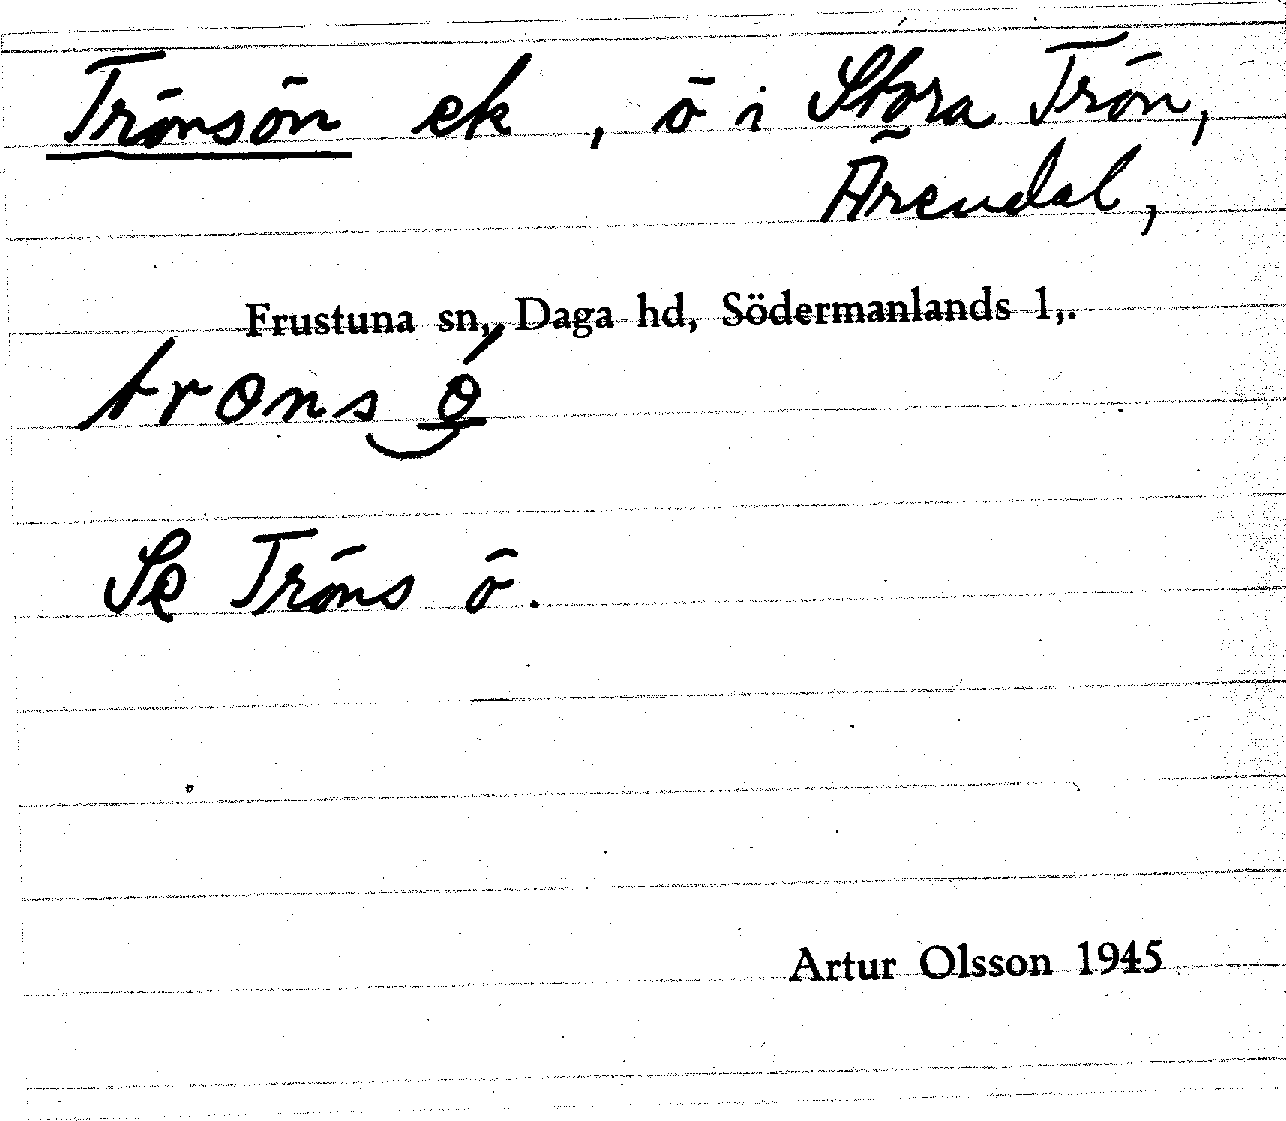 Trönsön ek, ö i Stora Trön,
Ärendal,
Frustuna sn, Daga hd, Södermanlands l,.
Se Tröns ö.
Artur Olsson 1945